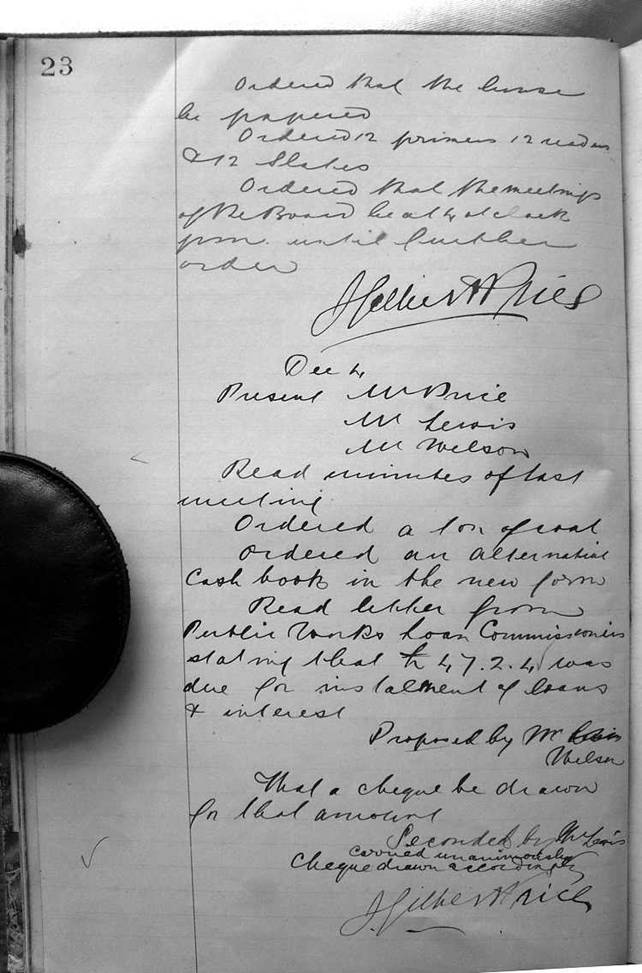 23
Ordered that the house
be papered
Ordered 12 primers 12 readers
& 12 Slates
Ordered that the meetings
of the Board be at 4 o'clock
p.m. until further
order
J Gilbert Price
Dec 4
Present Mr Price
Mr Lewis
Mr Wilson
Read minutes of last
meeting
Ordered a ton of coal
Ordered an alternative
Cash book in the new form
Read letter from
Public Works Loan Commissioners
stating that £47.2.4 was
due for instalment of loans
& interest
Proposed by Mr Lewis
Wilson
That a cheque be drawn
for that amount
Seconded by Mr Lewis
carried unanimously
Cheque drawn accordingly
J. Gilbert Price